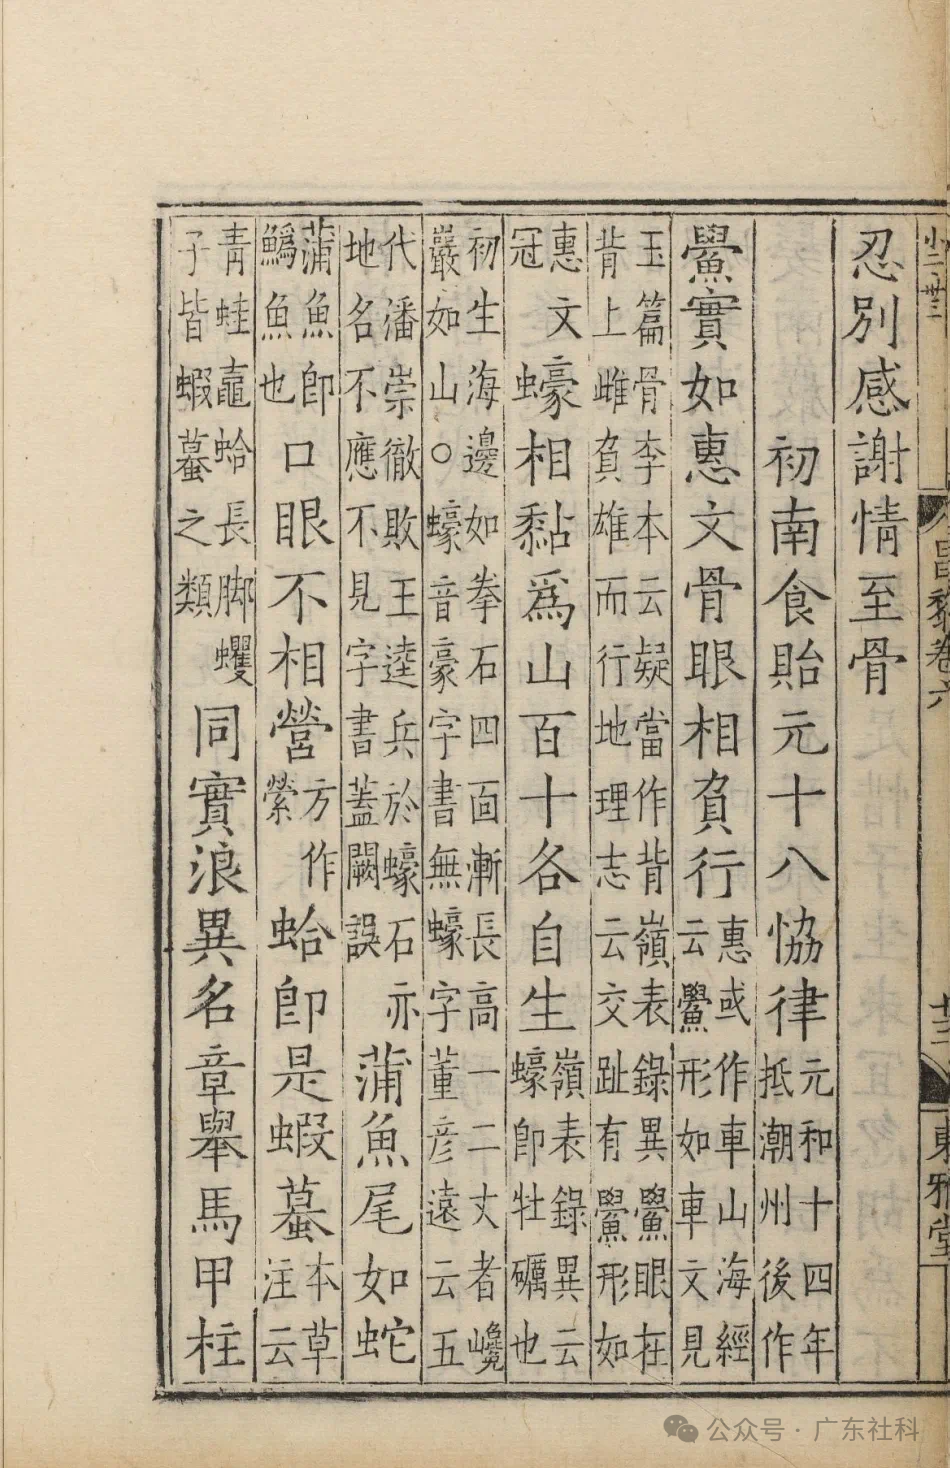 昌黎卷六
廿二
東雅堂
忍別感謝情至骨
初南食貽元十八協律元和十四年抵潮州後作
鱟實如惠文骨眼相負行惠或作車山海經云鱟形如車文見
玉篇骨李本云疑當作背嶺表錄異鱟眼在背上雌負雄而行地理志云交趾有鱟形如
惠文冠蠔相黏爲山百十各自生嶺表錄異云蠔卽牡礪也
初生海邊如拳石四面漸長高一二丈者巉巖如山○蠔音豪字書無蠔字董彦遠云五
代潘崇徹敗王逵兵於蠔石亦地名不應不見字書蓋闕誤蒲魚尾如蛇
蒲魚卽䲁魚也口眼不相營方作縈蛤卽是蝦蟇本草注云
青蛙鼃蛤長脚蠼子皆蝦蟇之類同實浪異名章舉馬甲柱
公众号·广东社科